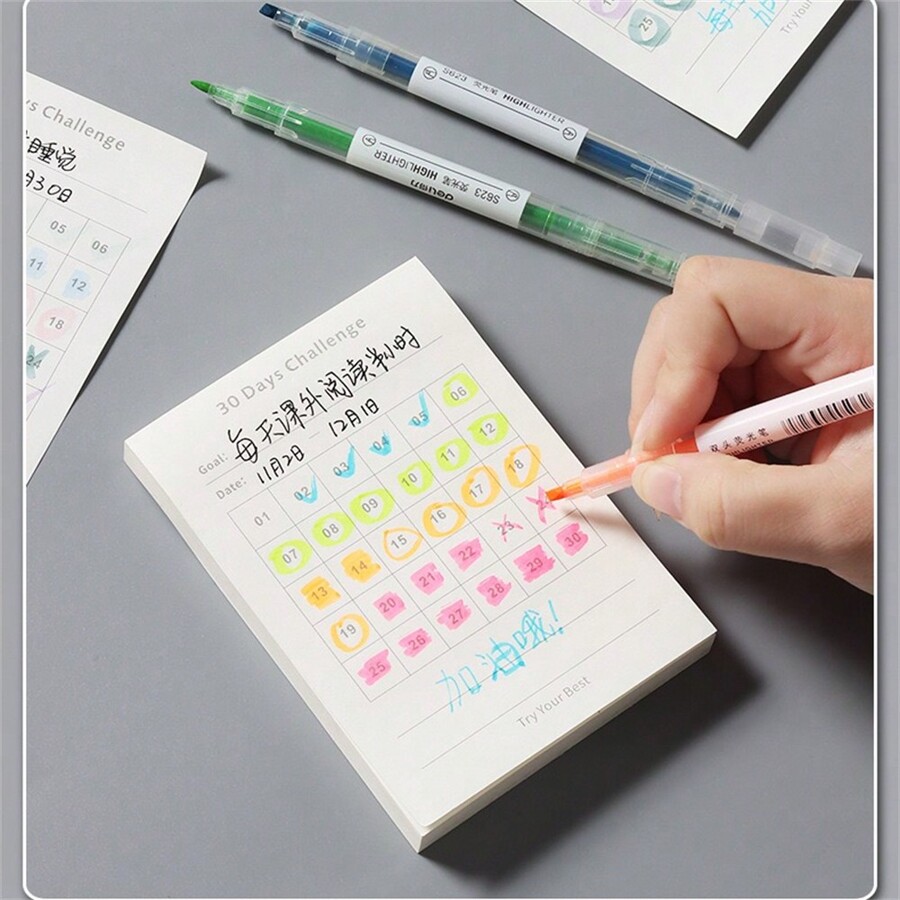 S623 荧光笔 HIGHLIGHTER
deli得力 S623 荧光笔 HIGHLIGHTER
25
Days Challenge
睡觉
月30日
05 06
11 12
18
24
30 Days Challenge
Goal: 每天课外阅读半小时
Date: 11月2日 12月1日
01 02 03 04 05 06
07 08 09 10 11 12
13 14 15 16 17 18
19 20 21 22 23
25 26 27 28 29 30
加油哦!
Try Your Best
双头荧光笔
HIGHLIGHTER
Try Your